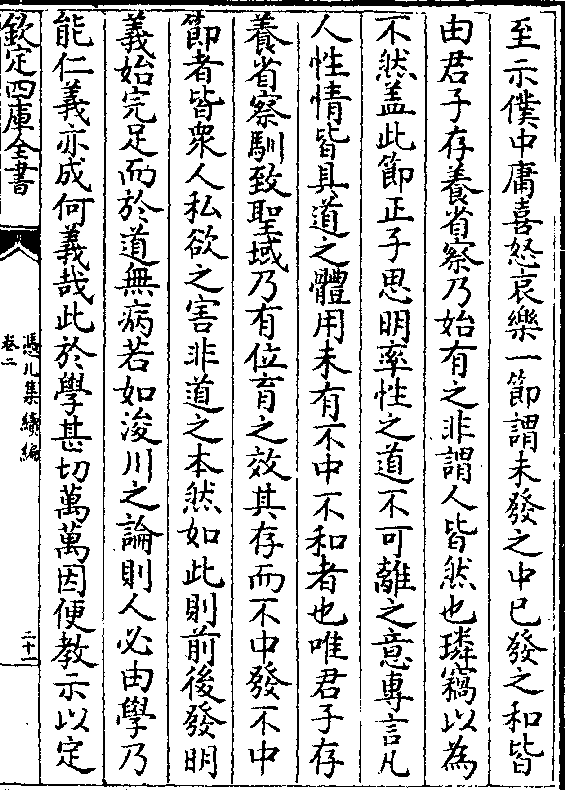 至示僕中庸喜怒哀樂一節謂未發之中已發之和皆
由君子存養省察乃始有之非謂人皆然也璘竊以為
不然盖此節正子思明率性之道不可離之意專言凡
人性情皆具道之體用未有不中不和者也唯君子存
養省察馴致聖域乃有位育之效其存而不中發不中
節者皆衆人私欲之害非道之本然如此則前後發明
義始完足而於道無病若如浚川之論則人必由學乃
能仁義亦成何義哉此於學甚切萬萬因便教示以定
欽定四庫全書
憑几集續編
卷二
二十一